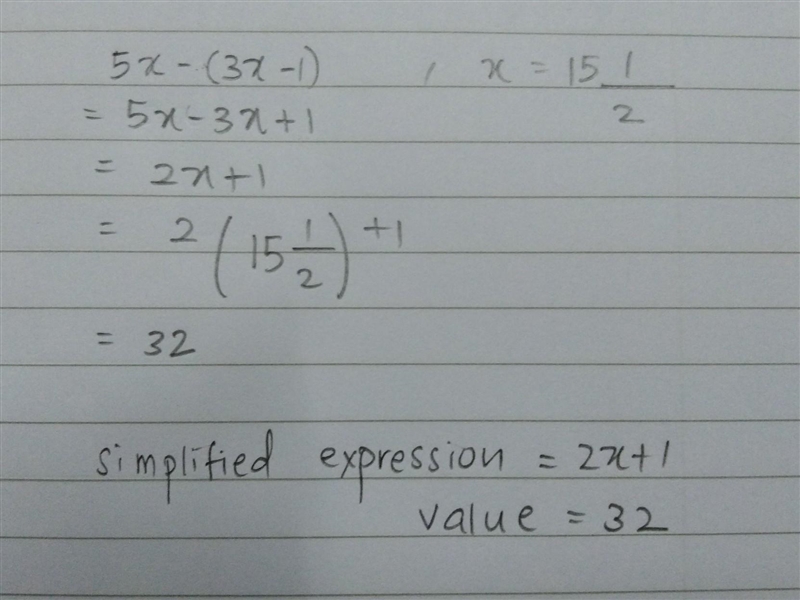 5x - (3x - 1) , x = 15 1/2
= 5x - 3x + 1
= 2x + 1
= 2 (15 1/2) + 1
= 32
simplified expression = 2x+1
value = 32